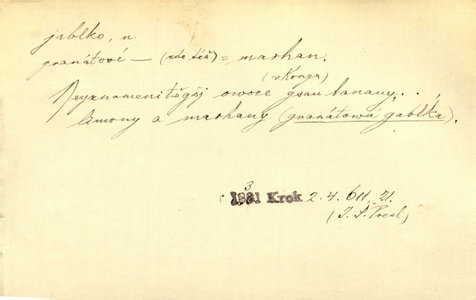 jablko, n.
granátové — (zde též) = marhan.
(v Kongu)
Neyznamenitěgšj owoce gsau banany, . .
limony a marhany (granátowá gablka).
3
1831 Krok 2. 4. 611, 21.
(J. S. Presl)